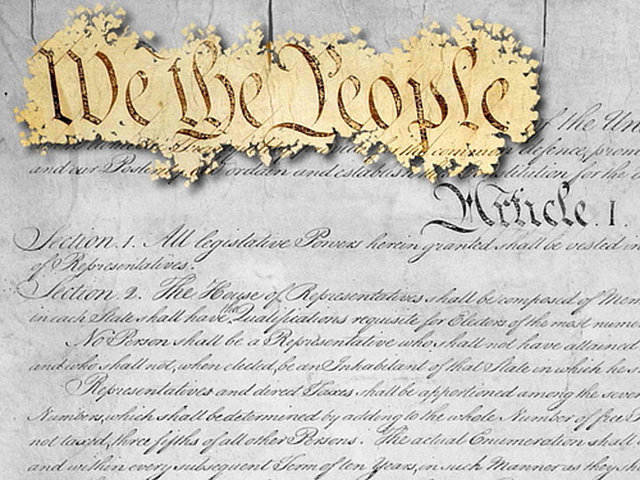 We the People
of the Un
defence, prom
and our Posterity ordain and establish Constitution for the
Article. I.
Section. 1. All legislative Powers herein granted shall be vested in
of Representatives.
Section. 2. The House of Representatives shall be composed of Mem
in each State shall have the Qualifications requisite for Electors of the most nume
No Person shall be a Representative who shall not have attained
and who shall not, when elected, be an Inhabitant of that State in which he s
Representatives and direct Taxes shall be apportioned among the seve
Numbers, which shall be determined by adding to the whole Number of free P
not taxed, three fifths of all other Persons. The actual Enumeration shall
and within every subsequent Term of ten Years, in such Manner as they sh